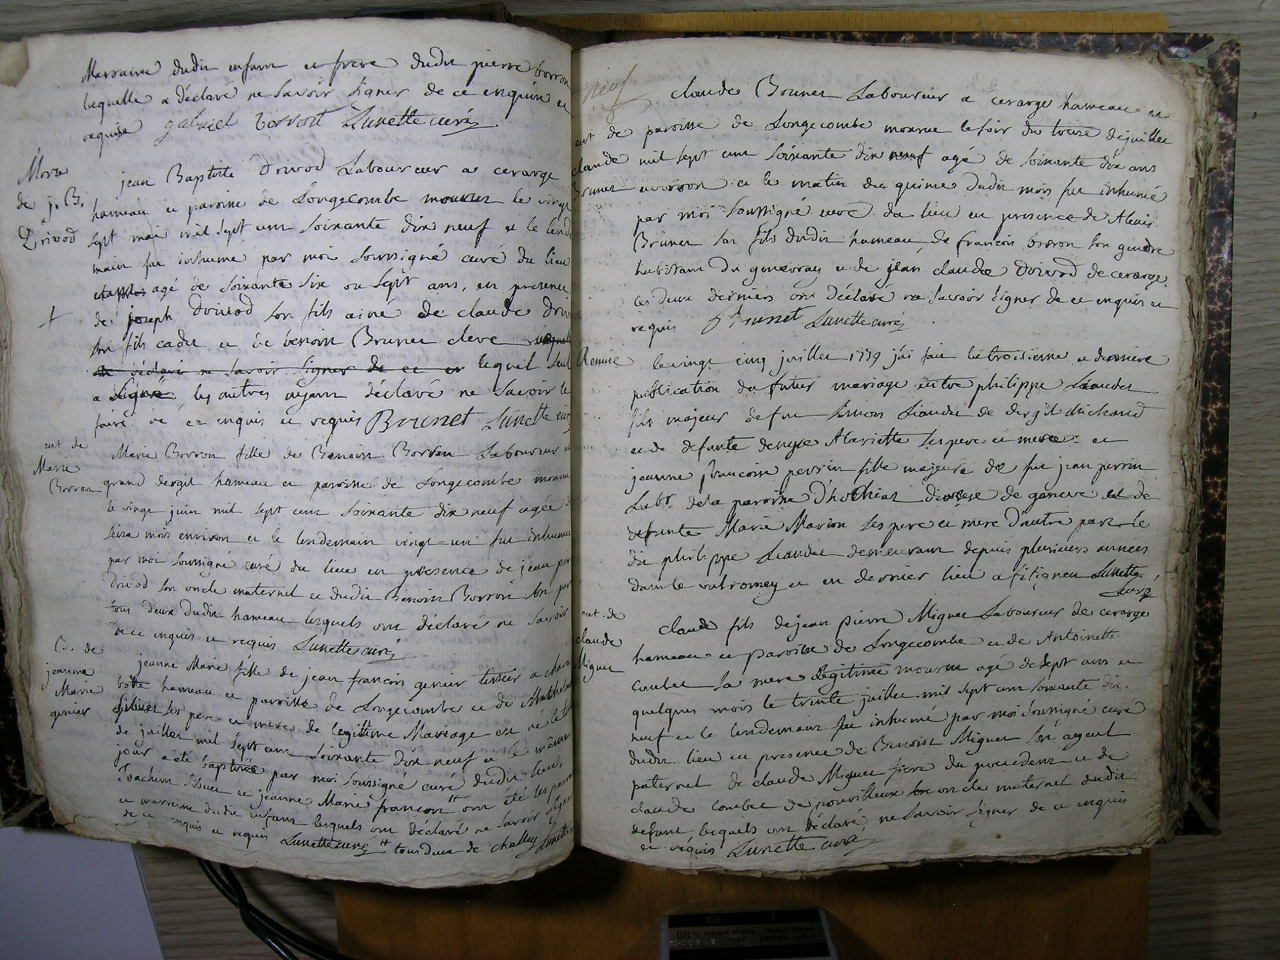 Marraine dudit enfant et frere dudit pierre borron
laquelle a déclaré ne savoir signer de ce enquise et
requise gabriel borront Lunette curé
Mort
de j. B.
Drivod
jean Baptiste Drivod Laboureur a cerarge
hameau et paroisse de Longecombe mourut le vingt
sept mai mil sept cent soixante dix neuf et le lende
main fut inhumé par moi soussigné curé du lieu
agé de soixante six ou sept ans, en presence
de joseph Drivod son fils ainé de claude Driv
son fils cadet et de benoit Brunet clerc
ne savoir signer de ce lequel seul
a signé, les autres ayant déclaré ne savoir le
faire de ce enquis et requis Brunet Lunette curé
ent. de
Marie
Borron
Marie Borron fille de Benoit Borron Laboureur
grand dergil hameau et paroisse de Longecombe mourut
le vingt juin mil sept cent soixante dix neuf agée
seize mois environ et le lendemain vingt-un fut inhumée
par moi soussigné curé du lieu en presence de jean
Drivod son oncle maternel et dudit Benoit Borron son
tous deux dudit hameau lesquels ont déclaré ne savoir
de ce enquis et requis Lunette curé
de
jeanne
Marie
genier
jeanne Marie fille de jean francois genier
hameau et paroisse de Longecombe et de
ses pere et mere de legitime Mariage est né le
de juillet mil sept cent soixante dix neuf et le même
jour a été baptisée par moi soussigné curé dudit lieu,
joachim et jeanne Marie francon ont été les
et marraine dudit enfant lesquels ont déclaré ne savoir signer
de ce enquis et requis Lunette curé tous deux de challey Lunette
claude Brunet Laboureur a cerarge hameau et
ent. de
claude
Brunet
paroisse de Longecombe mourut le soir du treize de juillet
mil sept cent soixante dix neuf agé de soixante dix ans
environ et le matin du quinze dudit mois fut inhumé
par moi soussigné curé du lieu en presence de Alexis
Brunet son fils dudit hameau de francois borron son gendre
habitant du genevray et de jean claude Drivod de cerarge
ces deux derniers ont déclaré ne savoir signer de ce enquis et
requis Brunet Lunette curé
Remise
le vingt cinq juillet 1779 j'ai fait la troisieme et derniere
publication du futur mariage entre philippe Liaudet
fils majeur de fut simon Liaudet de dergil Michaud
et de defunte denyse Mariette ses pere et mere: et
jeanne francoise perrin fille majeure de fut jean perrin
Labr. de la paroisse D'hochiaz diocese de geneve et de
defunte Marie Marion ses pere et mere d'autre part le
dit philippe Liaudet demeurant depuis plusieurs années
dans le valromey et en dernier lieu a fitigneu Lunette
curé
ent. de
claude
Miguet
claude fils de jean pierre Miguet Laboureur de cerarge
hameau et paroisse de Longecombe et de Antoinette
combet sa mere legitime mourut agé de sept ans et
quelques mois le trente juillet mil sept cent soixante dix
neuf et le lendemain fut inhumé par moi soussigné curé
dudit lieu en presence de Benoist Miguet son ayeul
paternel de claude Miguet frere du precedent et de
claude combet de oncle maternel dudit
defunt, lesquels ont déclaré ne savoir signer de ce enquis
et requis Lunette curé